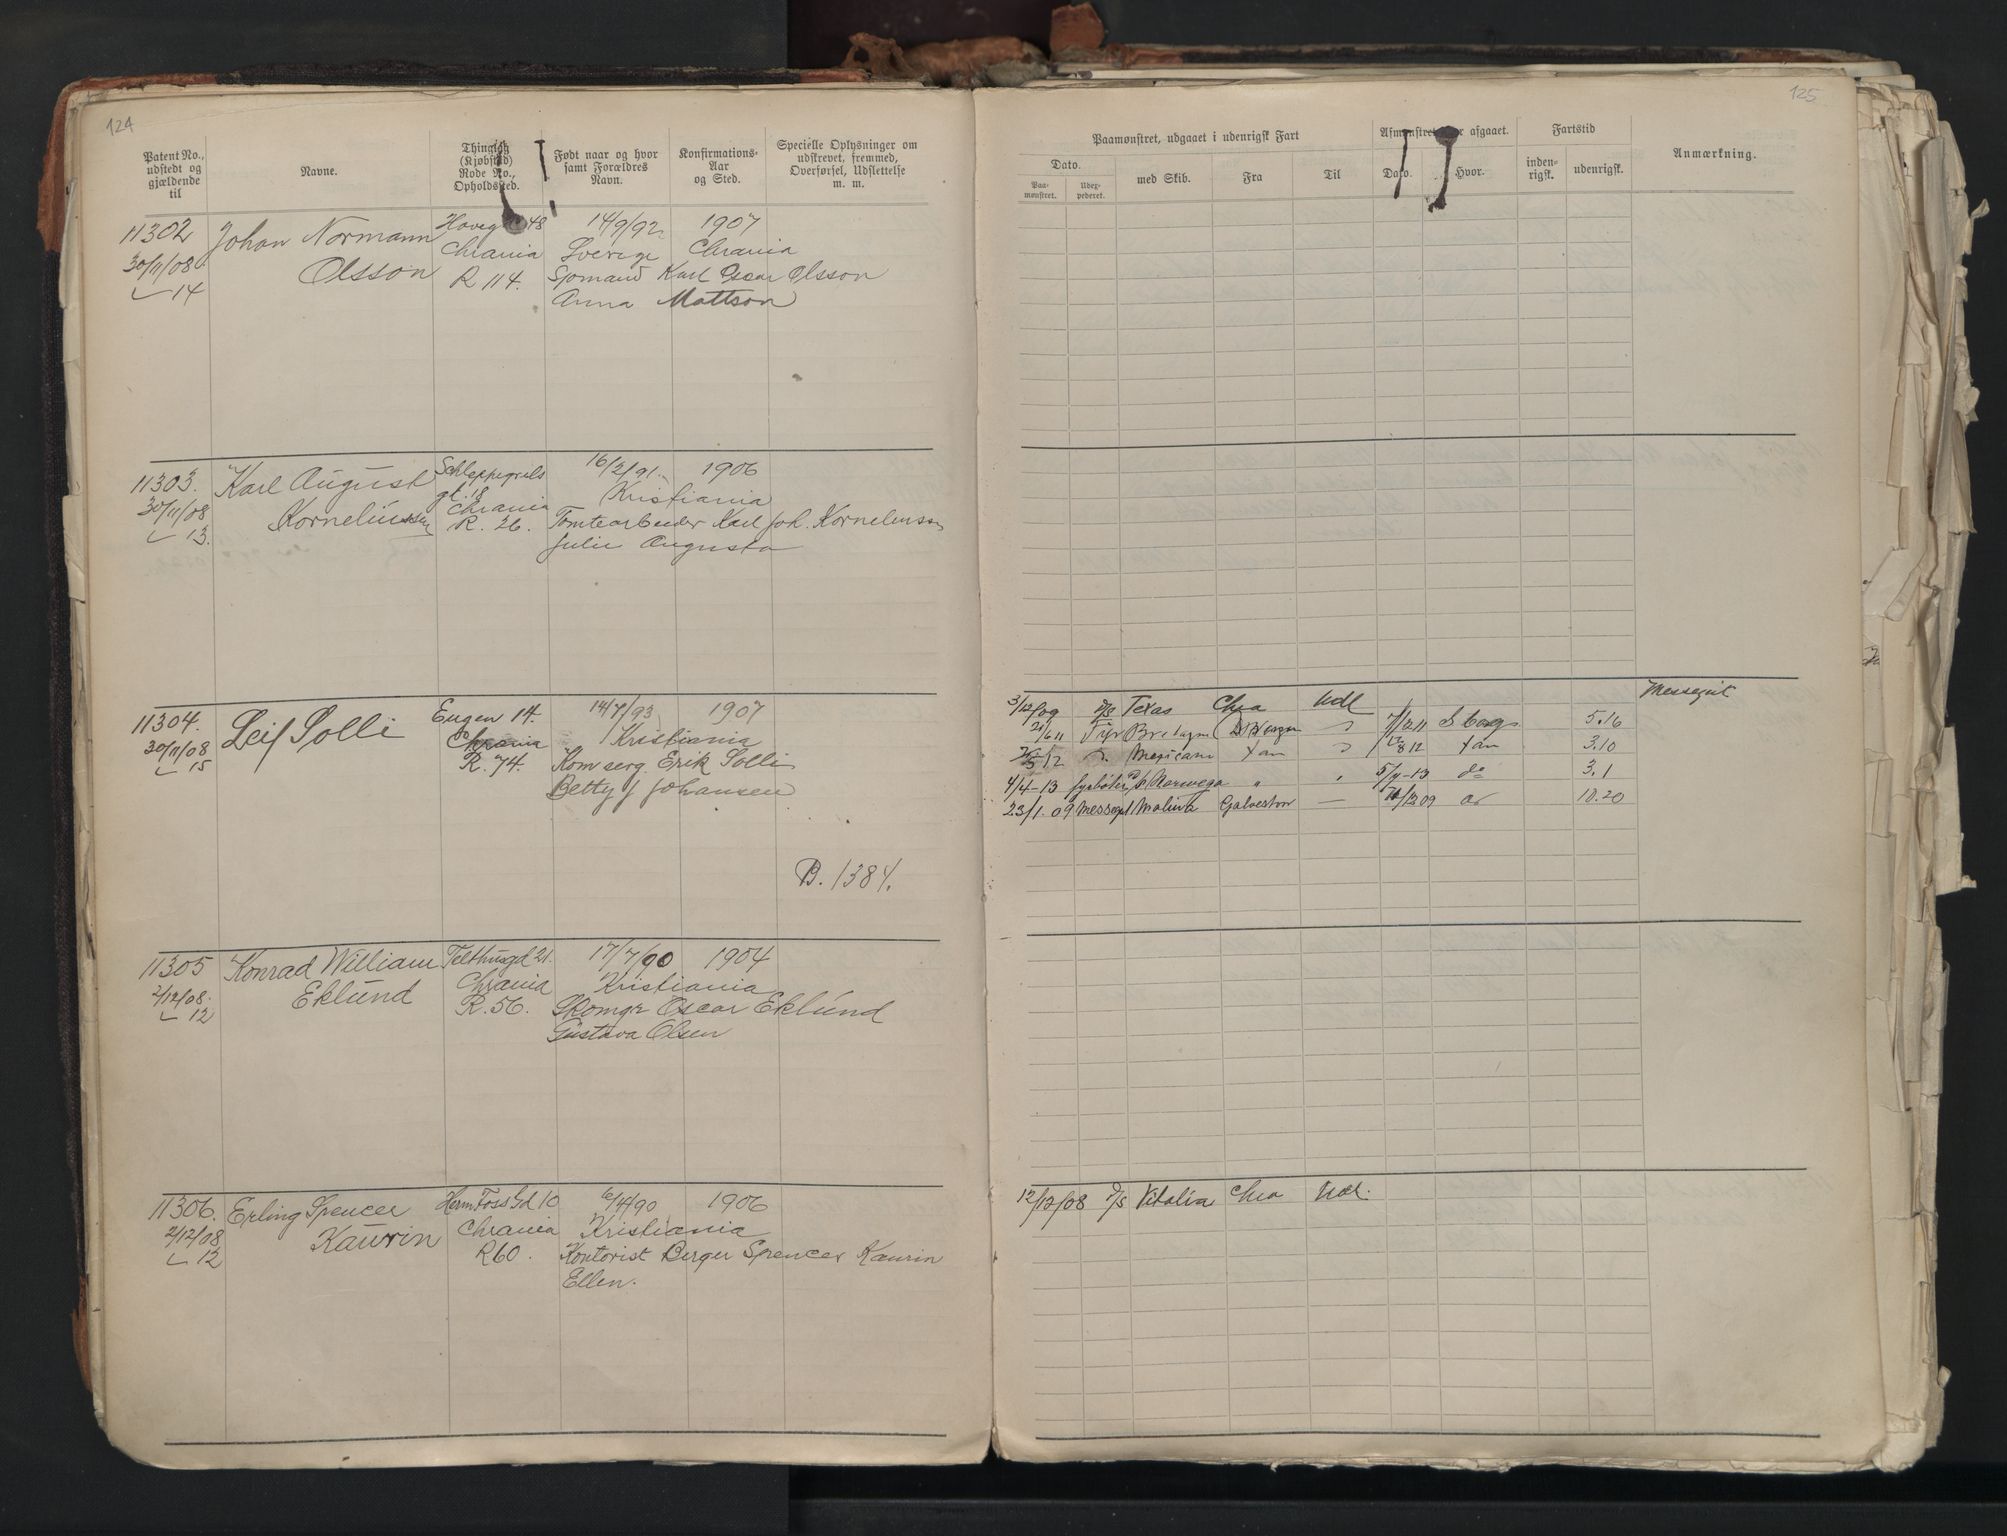 124
Patent No., udstedt og gjældende til
Navne.
Thinglag (Kjøbsted) Rode No., Opholdssted.
Født naar og hvor samt Forældres Navn.
Konfirmations-Aar og Sted.
Specielle Oplysninger om udskrevet, fremmed, Overførsel, Udslettelse m. m.
11302 Johan Normann 48 14/9/92 1907
30/11/08 Olsson Chrania Sverige Chrania
14 R 114. Sjømand Karl Oscar Olsson
Anna Mattson
11303. Karl August Schleppegrels 16/2/91. 1906
gt. 18 Kristiania
30/11/08 Kornelinssen Chrania
13. R. 26. Tomtearbeider Karl Joh. Kornelinssen
Julie Augusta
11304. Leif Solli Eugen 14. 14/7/93 1907
30/11/08 Chrania Kristiania
15 R. 74. Erik Solli
Betty f Johansen
B. 1384.
11305 Konrad William Telthusgd 21. 17/7/90 1904
2/12/08. Eklund Chrania Kristiania
12 R. 56. Skomgr Oscar Eklund
Gustava Olsen
11306. Erling Spencer Herm Foss Gd 10 6/4/90 1906
2/12/08 Kaurin Chrania Kristiania
12 R60. Kontorist Berger Spencer Kaurin
Ellen.
125
Paamønstret, udgaaet i udenrigsk Fart
Afmønstret afgaaet.
Fartstid
Anmærkning.
Dato.
Paa-mønstret.
Udex-pederet.
med Skib.
Fra
Til
Dato.
Hvor.
inden-rigsk.
udenrigsk.
3/12/09 D/S Texas Chra Udl Messegut
21/6 11 Fyr 7/12 11 5.16
12 Mexicano 8 12 3.10
4/4-13 Fyrbøter Norwega " 13 do 3.1
23/1.09 Messegt Malina Galveston — 12 09 10.20
12/12/08 D/S Vitalia Chra Udl.